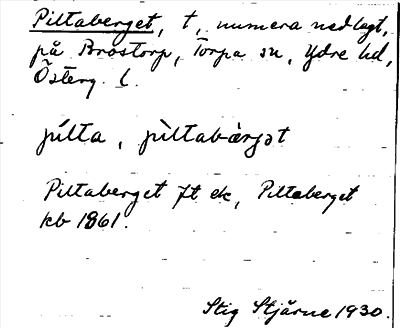 Piltaberget, t, numera nedlagt,
på Brostorp, Torpa sn, Ydre hd,
Österg. l.
pílta, pìltabàrgət
Piltaberget Jt ek, Piltaberget
kb 1861.
Stig Stjärne 1930.